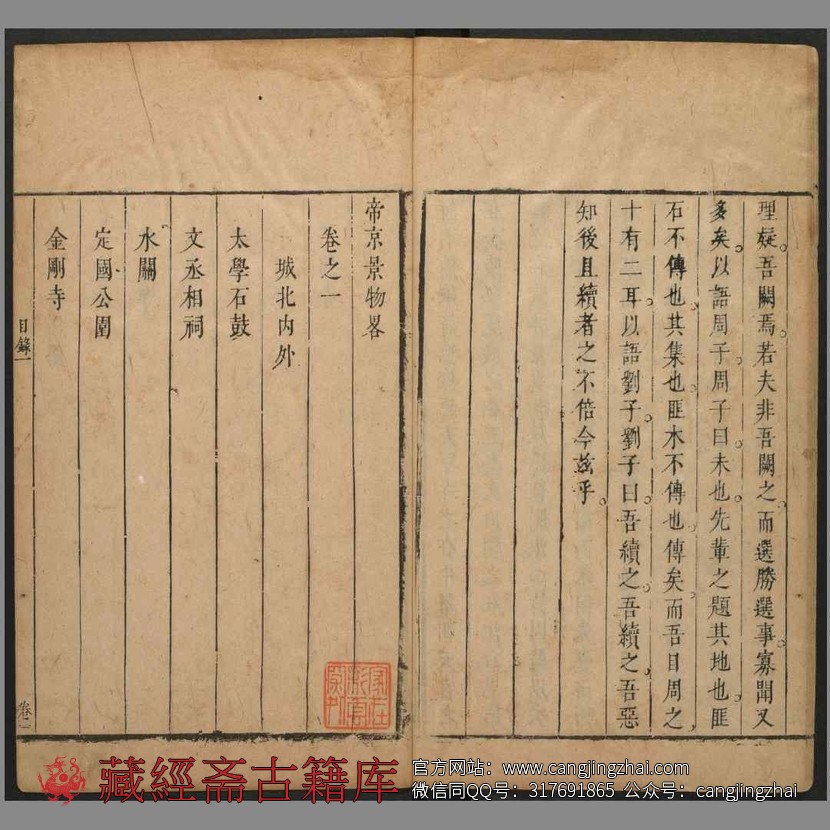 理疑。吾闕焉。若夫非吾闕之。而選勝選事。寡聞又
多矣。以語周子。周子曰。未也。先輩之題其地也。匪
石不傳也。其集也。匪木不傳也。傳矣。而吾目周之。
十有二耳。以語劉子。劉子曰。吾續之。吾續之。吾惡
知後且續者之不倍今茲乎。
帝京景物畧
卷之一
城北內外
太學石鼓
文丞相祠
水關
定國公園
金剛寺
目錄一
藏經斋古籍库
官方网站：www.cangjingzhai.com
微信同QQ号：317691865 公众号：cangjingzhai